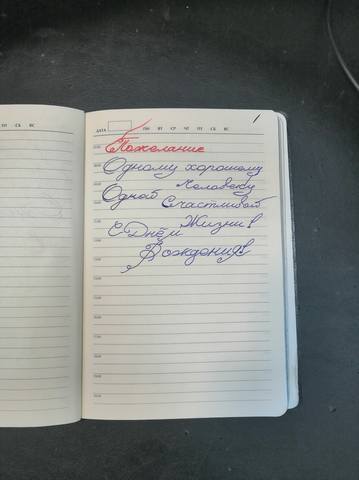 ПТ СБ ВС
ДАТА ПН ВТ СР ЧТ ПТ СБ ВС
Пожелание
Одному хорошому
Человеку
Одной Счастливой
Жизни!
С Днём
Рождения!